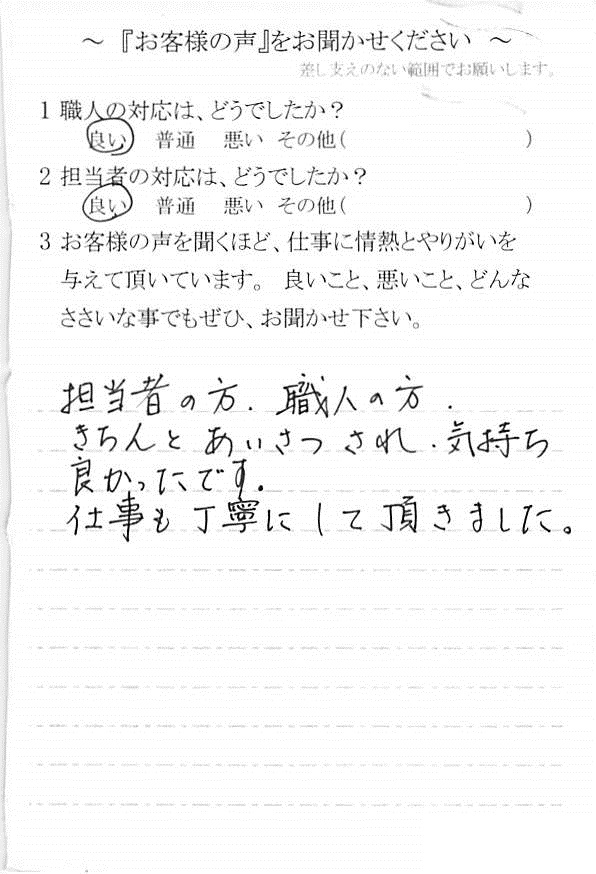 ～『お客様の声』をお聞かせください ～
差し支えのない範囲でお願いします。
1 職人の対応は、どうでしたか？
良い 普通 悪い その他( )
2 担当者の対応は、どうでしたか？
良い 普通 悪い その他( )
3 お客様の声を聞くほど、仕事に情熱とやりがいを
与えて頂いています。 良いこと、悪いこと、どんな
ささいな事でもぜひ、お聞かせ下さい。
担当者の方、職人の方、
きちんとあいさつされ、気持ち
良かったです。
仕事も丁寧にして頂きました。